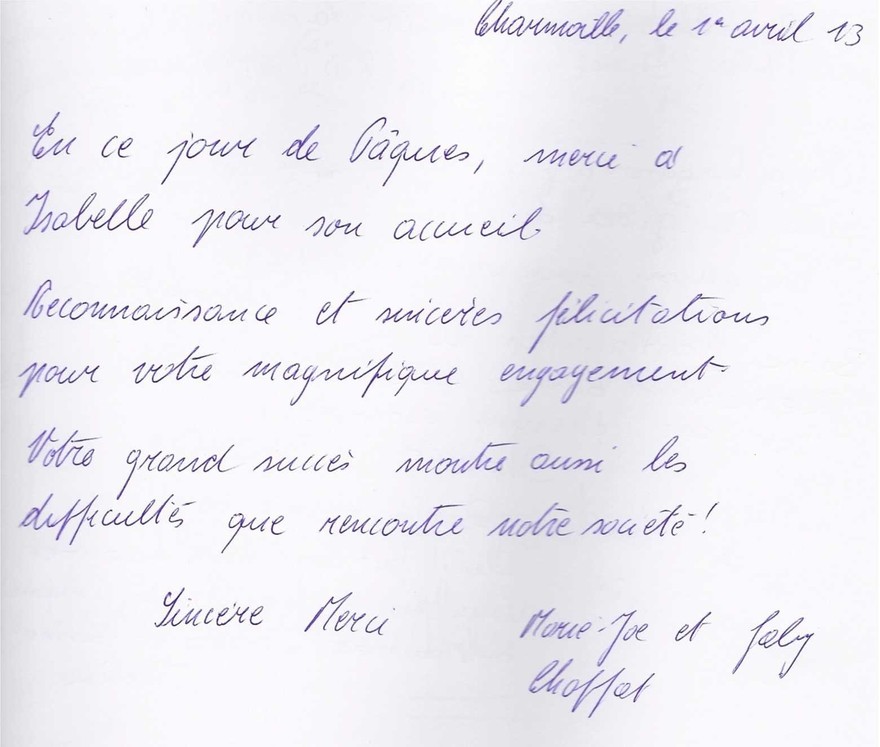 Charmoille, le 1er avril 13
En ce jour de Pâques, merci à
Isabelle pour son accueil
Reconnaissance et sincères félicitations
pour votre magnifique engagement.
Votre grand succès montre aussi les
difficultés que rencontre notre société !
Sincère Merci
Marie-Joe et Gaby
Choffat